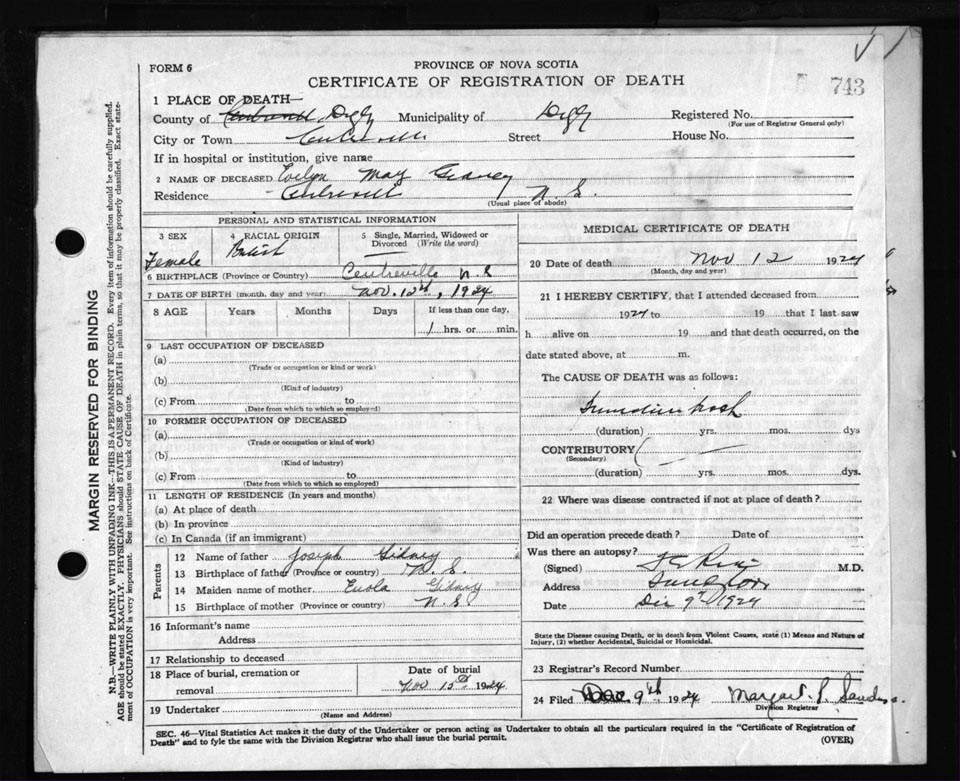 FORM 6
PROVINCE OF NOVA SCOTIA
CERTIFICATE OF REGISTRATION OF DEATH
743
1 PLACE OF DEATH—
County of Digby Municipality of Digby Registered No.
(For use of Registrar General only)
City or Town Street House No.
If in hospital or institution, give name
2 NAME OF DECEASED Evelyn May Gidney
Residence N. S.
(Usual place of abode)
PERSONAL AND STATISTICAL INFORMATION
3 SEX 4 RACIAL ORIGIN 5 Single, Married, Widowed or Divorced (Write the word)
Female British —
6 BIRTHPLACE (Province or Country) Centreville N. S
7 DATE OF BIRTH (month, day and year) Nov. 12th, 1924
8 AGE Years Months Days If less than one day,
1 hrs. or min.
9 LAST OCCUPATION OF DECEASED
(a)
(Trade or occupation or kind or work)
(b)
(Kind of industry)
(c) From to
(Date from which to which so employed)
10 FORMER OCCUPATION OF DECEASED
(a)
(Trade or occupation or kind of work)
(b)
(Kind of industry)
(c) From to
(Date from which to which so employed)
11 LENGTH OF RESIDENCE (In years and months)
(a) At place of death
(b) In province
(c) In Canada (if an immigrant)
Parents
12 Name of father Joseph Gidney
13 Birthplace of father (Province or country) N. S.
14 Maiden name of mother Gidney
15 Birthplace of mother (Province or country) N. S
16 Informant's name
Address
17 Relationship to deceased
18 Place of burial, cremation or removal
Date of burial
Nov 15th 1924
19 Undertaker
(Name and Address)
MEDICAL CERTIFICATE OF DEATH
20 Date of death Nov 12 1924
(Month, day and year)
21 I HEREBY CERTIFY, that I attended deceased from
1924 to 19 that I last saw
h alive on 19 and that death occurred, on the
date stated above, at m.
The CAUSE OF DEATH was as follows:
(duration) yrs. mos. dys
CONTRIBUTORY
(Secondary)
(duration) yrs. mos. dys.
22 Where was disease contracted if not at place of death?
Did an operation precede death? Date of
Was there an autopsy?
(Signed) M.D.
Address
Date Dec 9th 1924
State the Disease causing Death, or in death from Violent Causes, state (1) Means and Nature of
Injury, (2) whether Accidental, Suicidal or Homicidal.
23 Registrar's Record Number
24 Filed Dec 9th 1924 Margaret
Division Registrar
SEC. 46—Vital Statistics Act makes it the duty of the Undertaker or person acting as Undertaker to obtain all the particulars required in the "Certificate of Registration of
Death" and to fyle the same with the Division Registrar who shall issue the burial permit.
(OVER)
MARGIN RESERVED FOR BINDING
N.B.—WRITE PLAINLY WITH UNFADING INK—THIS IS A PERMANENT RECORD. Every item of information should be carefully supplied.
AGE should be stated EXACTLY. PHYSICIANS should STATE CAUSE OF DEATH in plain terms, so that it may be properly classified. Exact state-
ment of OCCUPATION is very important. See instructions on back of Certificate.